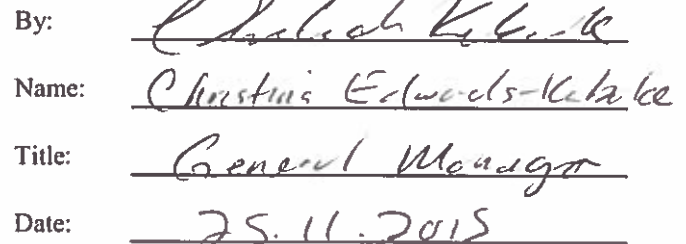 By:
Name: Christina Edwards-Kabake
Title: General Manager
Date: 25.11.2015